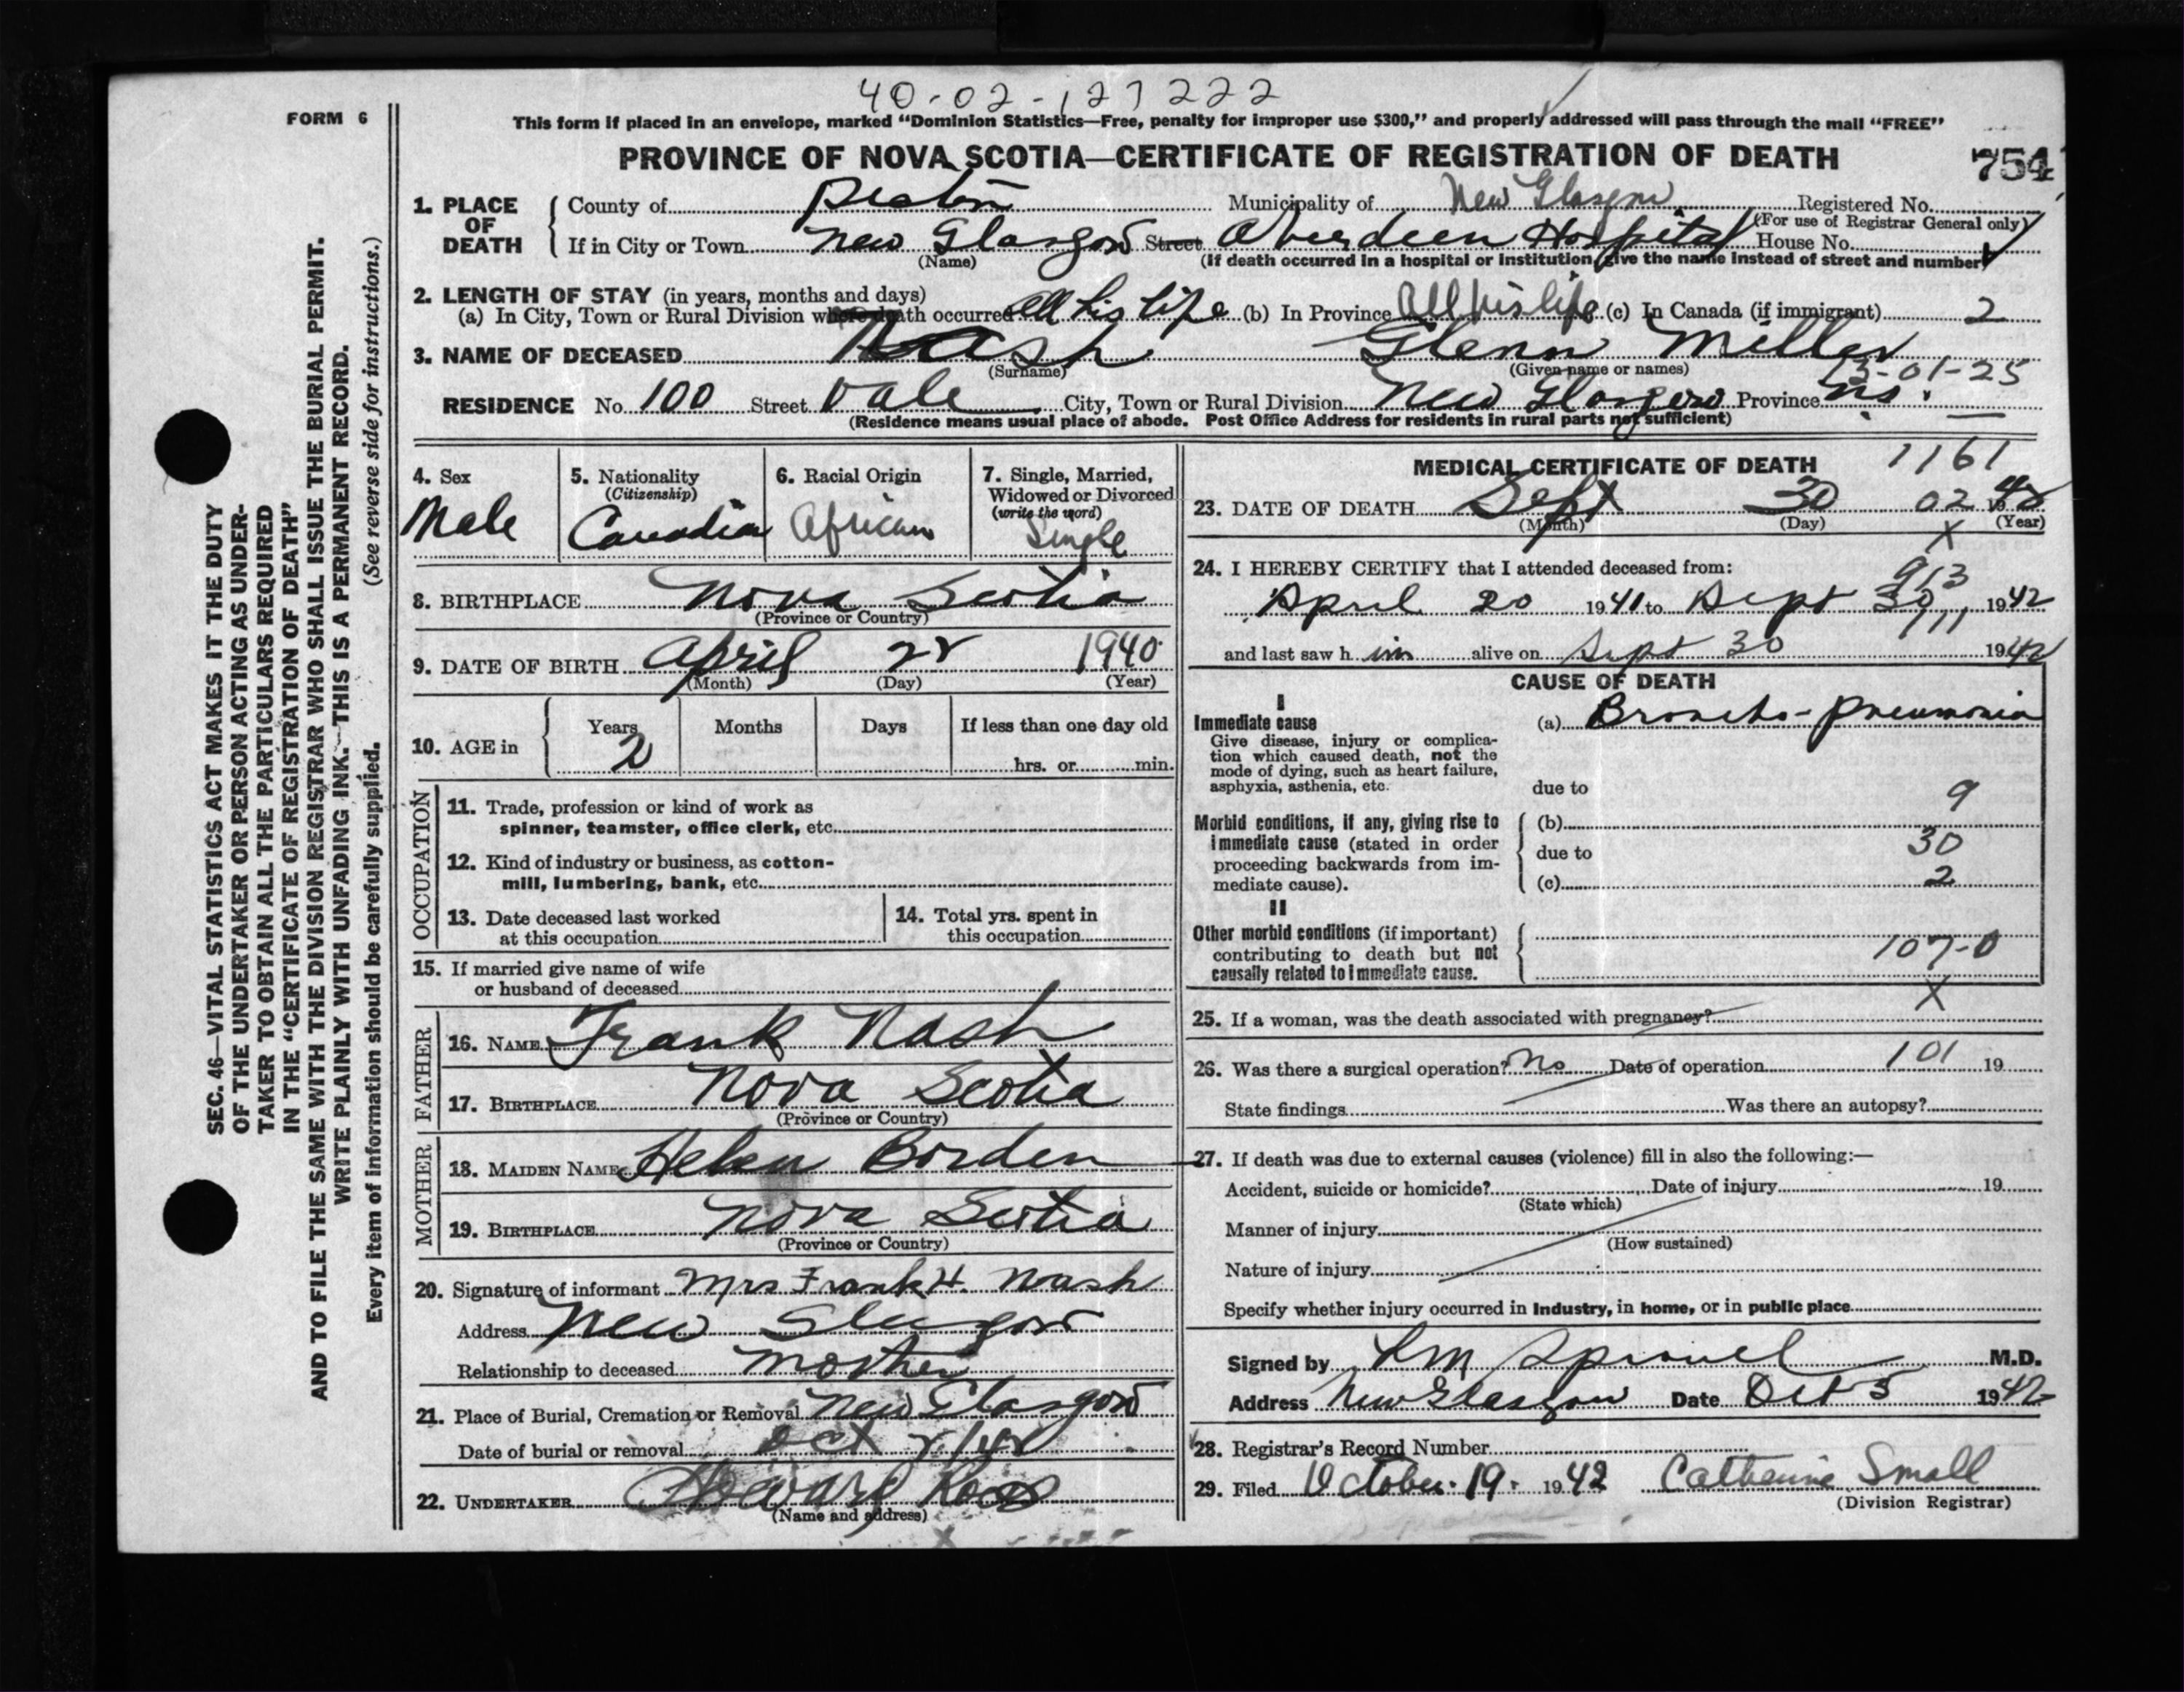 40-02-127222
FORM 6
This form if placed in an envelope, marked “Dominion Statistics—Free, penalty for improper use $300,” and properly addressed will pass through the mail “FREE”
PROVINCE OF NOVA SCOTIA—CERTIFICATE OF REGISTRATION OF DEATH
754
1. PLACE OF DEATH
County of Pictou Municipality of New Glasgow Registered No.
(For use of Registrar General only)
If in City or Town New Glasgow Street Aberdeen Hospital House No.
(Name) (If death occurred in a hospital or institution, give the name instead of street and number)
2. LENGTH OF STAY (in years, months and days)
(a) In City, Town or Rural Division where death occurred all his life (b) In Province All his life (c) In Canada (if immigrant) 2
3. NAME OF DECEASED Nash Glenn Miller
(Surname) (Given name or names)
13-01-25
RESIDENCE No. 100 Street Vale City, Town or Rural Division New Glasgow Province N.S.
(Residence means usual place of abode. Post Office Address for residents in rural parts not sufficient)
4. Sex
Male
5. Nationality
(Citizenship)
Canadian
6. Racial Origin
African
7. Single, Married,
Widowed or Divorced
(write the word)
Single
8. BIRTHPLACE Nova Scotia
(Province or Country)
9. DATE OF BIRTH April 22 1940
(Month) (Day) (Year)
10. AGE in
Years Months Days If less than one day old
2 hrs. or min.
OCCUPATION
11. Trade, profession or kind of work as
spinner, teamster, office clerk, etc.
12. Kind of industry or business, as cotton-
mill, lumbering, bank, etc.
13. Date deceased last worked
at this occupation
14. Total yrs. spent in
this occupation
15. If married give name of wife
or husband of deceased
FATHER
16. NAME Frank Nash
17. BIRTHPLACE Nova Scotia
(Province or Country)
MOTHER
18. MAIDEN NAME Helen Borden
19. BIRTHPLACE Nova Scotia
(Province or Country)
20. Signature of informant Mrs Frank H. Nash
Address New Glasgow
Relationship to deceased mother
21. Place of Burial, Cremation or Removal New Glasgow
Date of burial or removal Oct 2/42
22. UNDERTAKER Howard
(Name and address)
MEDICAL CERTIFICATE OF DEATH
1161
23. DATE OF DEATH Sept 30 02 42
(Month) (Day) (Year)
X
24. I HEREBY CERTIFY that I attended deceased from:
913
April 20 1941 to Sept 30 1942
111
and last saw h im alive on Sept 30 1942
CAUSE OF DEATH
I
Immediate cause
Give disease, injury or complica-
tion which caused death, not the
mode of dying, such as heart failure,
asphyxia, asthenia, etc.
(a) Broncho-pneumonia
due to
9
Morbid conditions, if any, giving rise to
immediate cause (stated in order
proceeding backwards from im-
mediate cause).
(b)
due to 30
(c) 2
II
Other morbid conditions (if important)
contributing to death but not
causally related to immediate cause.
107-0
X
25. If a woman, was the death associated with pregnancy?
26. Was there a surgical operation? No Date of operation 101 19
State findings Was there an autopsy?
27. If death was due to external causes (violence) fill in also the following:—
Accident, suicide or homicide? Date of injury 19
(State which)
Manner of injury
(How sustained)
Nature of injury
Specify whether injury occurred in industry, in home, or in public place
Signed by M.D.
Address New Glasgow Date Oct 5 1942
28. Registrar's Record Number
29. Filed October 19 1942 Catherine Small
(Division Registrar)
SEC. 46—VITAL STATISTICS ACT MAKES IT THE DUTY
OF THE UNDERTAKER OR PERSON ACTING AS UNDER-
TAKER TO OBTAIN ALL THE PARTICULARS REQUIRED
IN THE “CERTIFICATE OF REGISTRATION OF DEATH”
AND TO FILE THE SAME WITH THE DIVISION REGISTRAR WHO SHALL ISSUE THE BURIAL PERMIT.
WRITE PLAINLY WITH UNFADING INK.—THIS IS A PERMANENT RECORD.
Every item of information should be carefully supplied. (See reverse side for instructions.)